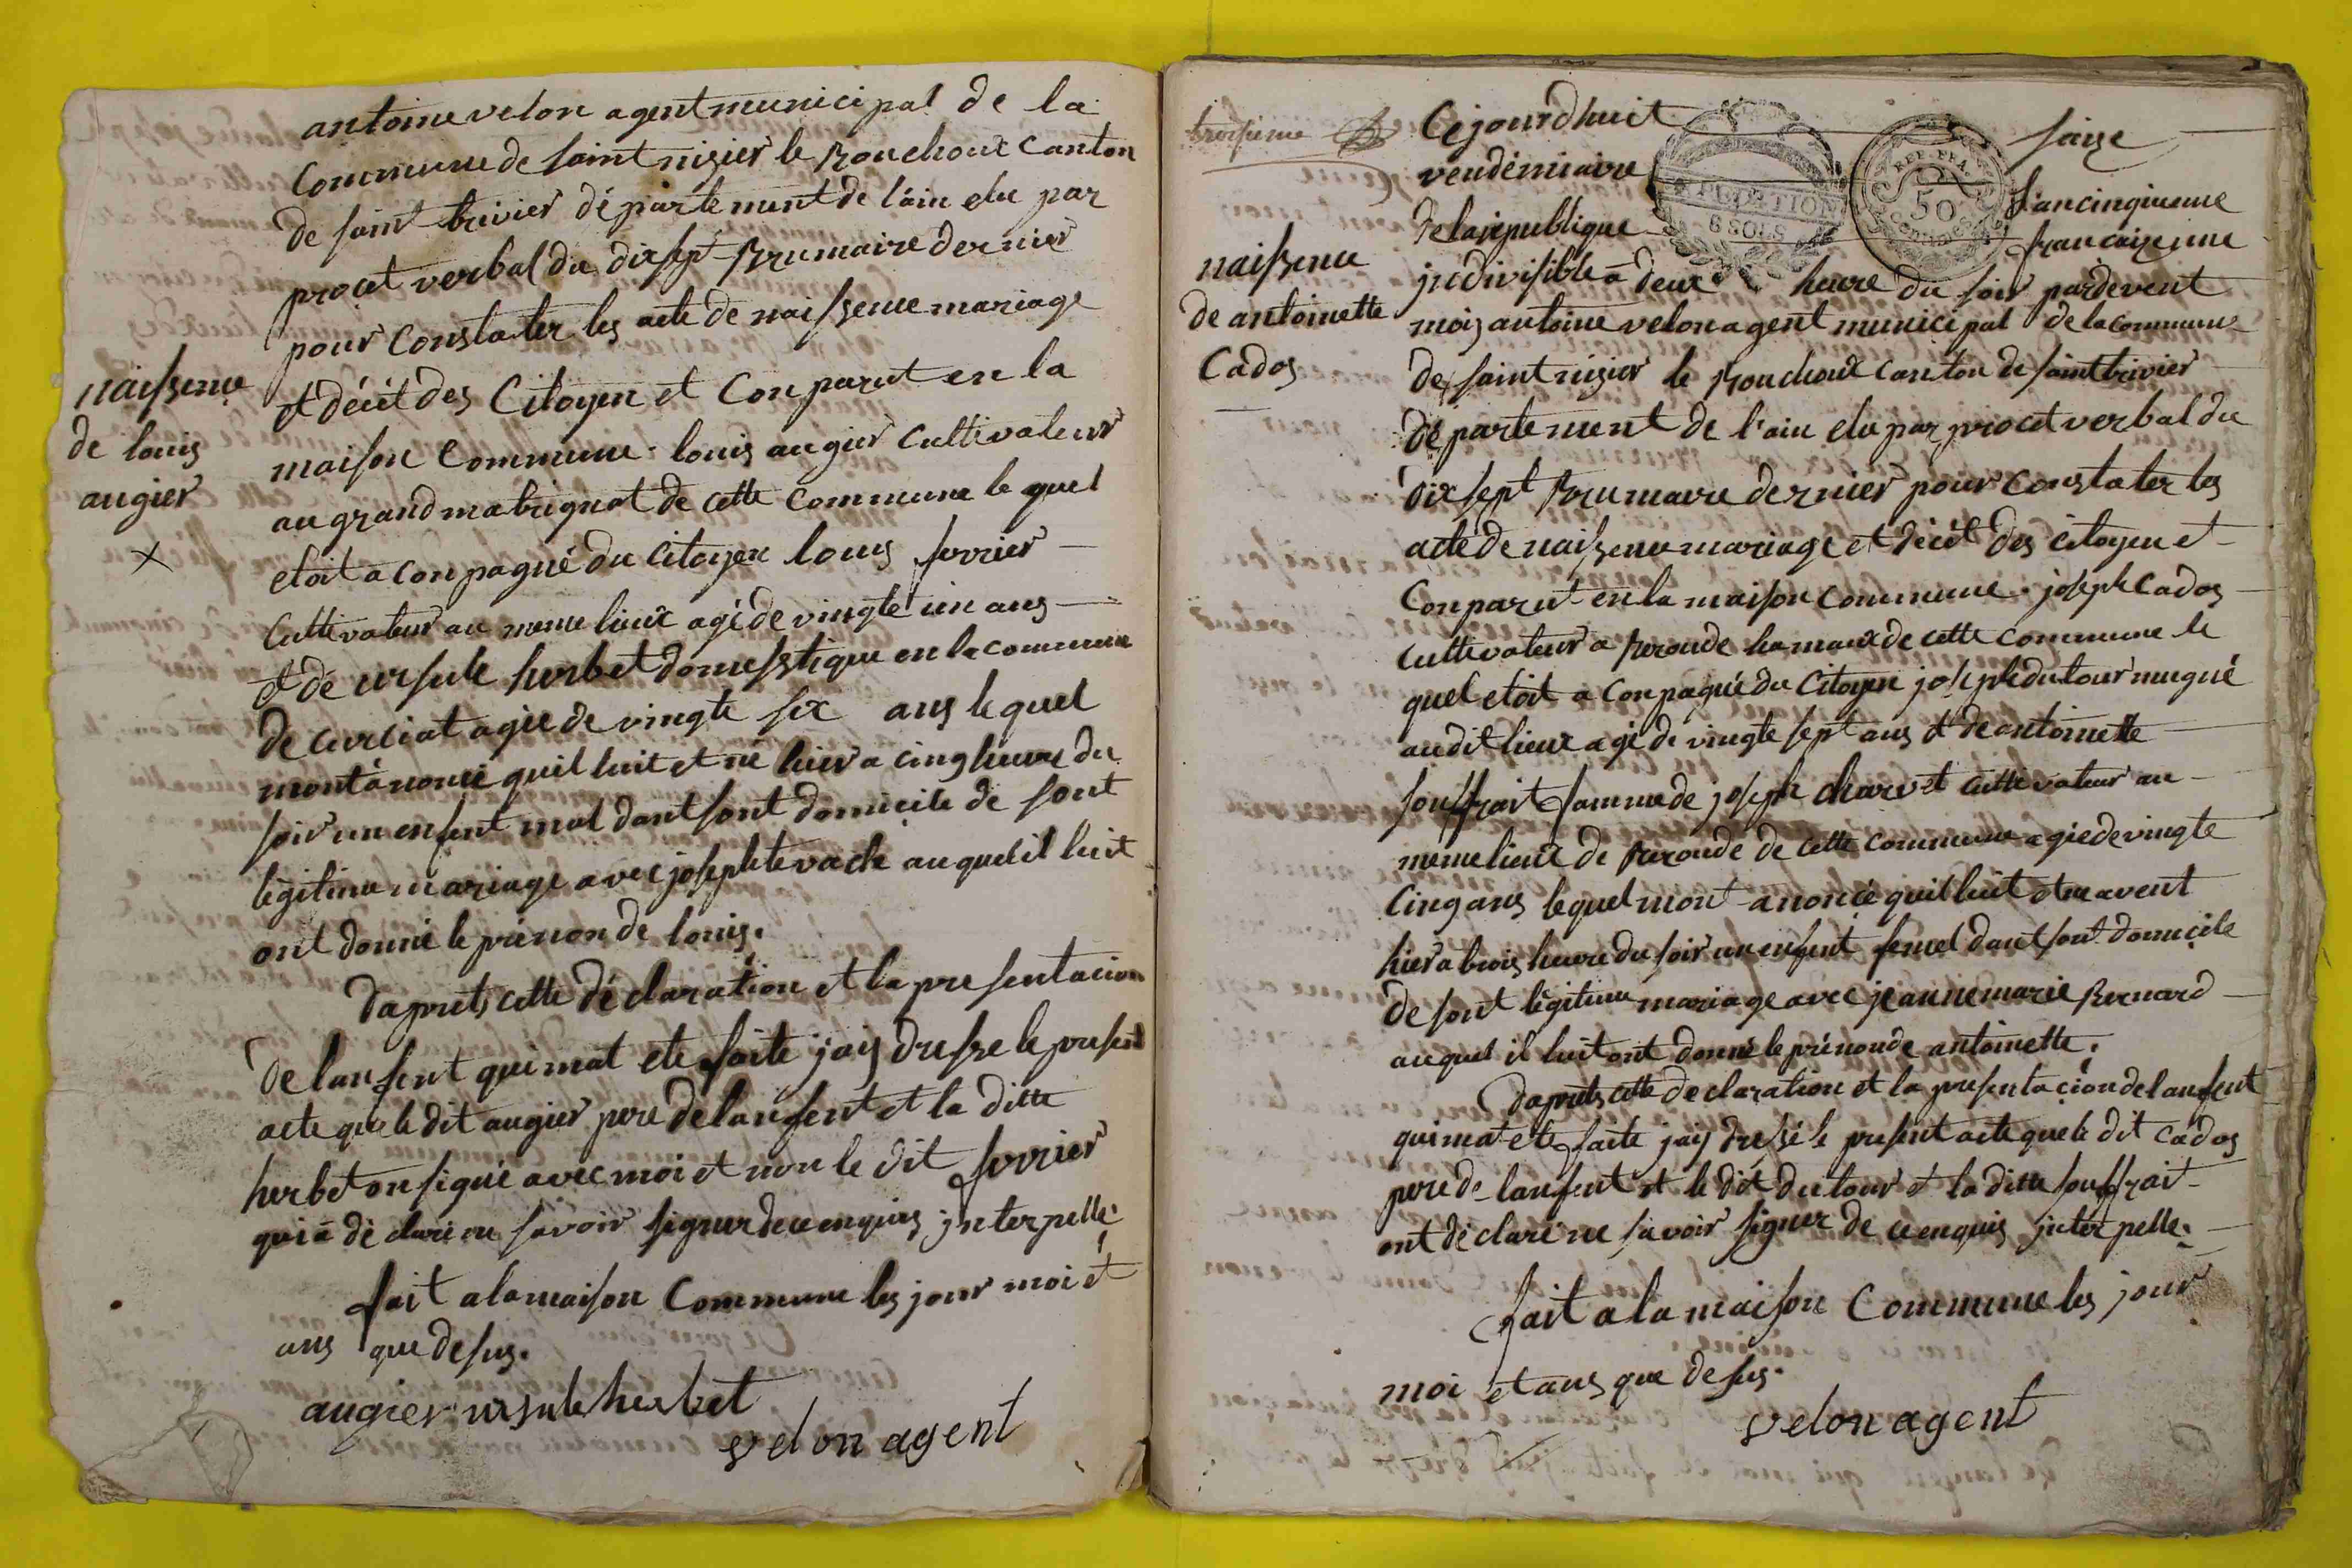 antoine velon agent municipal de la
Commune de saint nisier le Bouchoux canton
de saint trivier département de lain elu par
procet verbal du dix sept Brumaire dernier
pour Constater les acte de naissence mariage
et décét des Citoyen et Conparut en la
naissence
de louis
augier
maison Commune. louis augier cultivateur
au grand matrignat de cette commune le quel
etoit a conpagné du Citoyen louis ferrier
Cultivateur au meme lieux agé de vingte un ans
et de ursule herbet domesstique en la commune
de curciat agée de vingte six ans le quel
mont anoncé quil luit et né hier a cinq heure du
soir un enfent mal dont sont domicile de sont
légitime mariage avec josephte vache au quel il luit
ont donné le prénon de louis.
daprets cette déclaration et la presentacion
de lanfent qui mat ete faite jais dresse le present
acte que le dit augier pere de lanfent et la ditte
herbet on signé avec moi et non le dit ferrier
qui a déclaré ne savoir signer de ce enquis jnterpellé
fait a la maison Commune les jour moi et
ans que desus.
augier ursule herbet
velon agent
troisieme
Cejourdhuit saize
vendémiaire l'an cinquieme
de la republique francaize une
jndivisible a deux heure du soir pardevent
REP. FRA.
50
8 SOLS
naissence
de antoinette
Cados
mois antoine velon agent municipal de la commune
de saint nisier le Bouchoux canton de saint trivier
département de l'ain elu par procet verbal du
dix sept Brumaire dernier pour Constater les
acte de naissence mariage et décét des citoyen et
Conparut en la maison commune. joseph Cados
cultivateur a Beronde hamaux de cette commune le
quel etoit a conpagné du Citoyen joseph dutour mugné
audit lieux agé de vingte sept ans et de antoinette
souffrait famme de joseph charvet cultivateur au
meme lieux de Beronde de cette commune agée de vingte
Cinq ans le quel mont anoncé quil luit et ne avent
hier a trois heure du soir un enfent femel dont sont domicile
de sont légitime mariage avec jeanne marie Bernard
au quel il luit ont donné le prénon de antoinette.
daprets cette declaration et la presentacion de lanfent
qui mat ete faite jais dressé le present acte que le dit Cados
pere de lanfent et le dit dutour et la ditte souffrait
ont déclaré ne savoir signer de ce enquis jnterpelle.
fait a la maison Commune les jour
moi et ans que desus.
velon agent